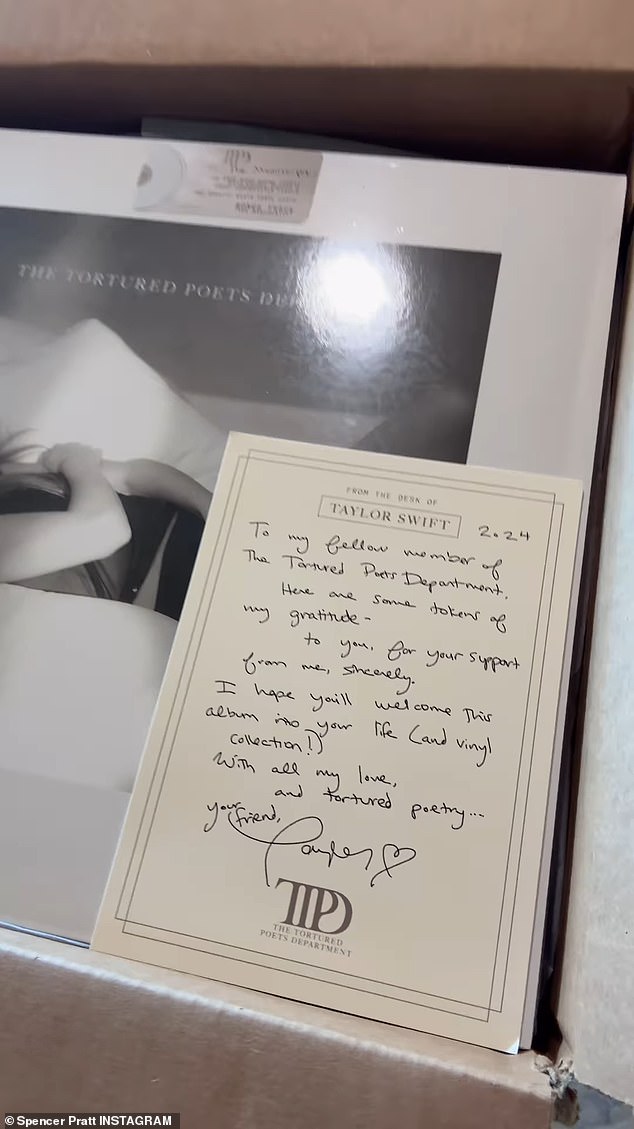 The Manuscript
THE TORTURED POETS DE
FROM THE DESK OF
TAYLOR SWIFT
2024
To my fellow member of
The Tortured Poets Department.
Here are some tokens of
my gratitude-
to you, for your support
from me, sincerely.
I hope you'll welcome this
album into your life (and vinyl
collection!)
With all my love,
and tortured poetry...
your friend,
Taylor
TTPD
THE TORTURED
POETS DEPARTMENT
© Spencer Pratt INSTAGRAM